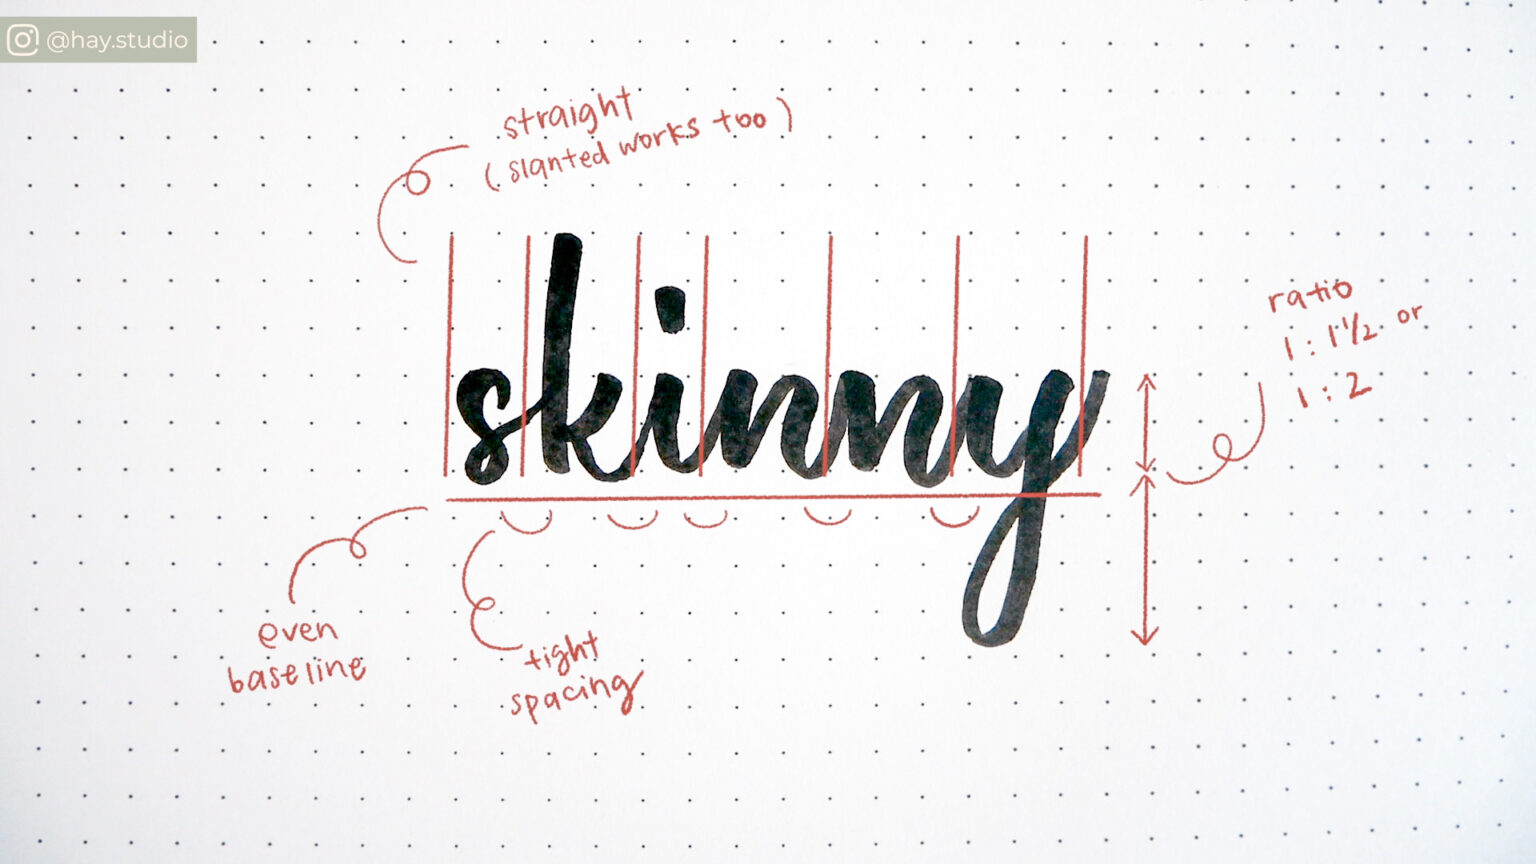 @hay.studio
straight
(slanted works too)
skinny
ratio
1 : 1 1/2 or
1 : 2
even
baseline
tight
spacing